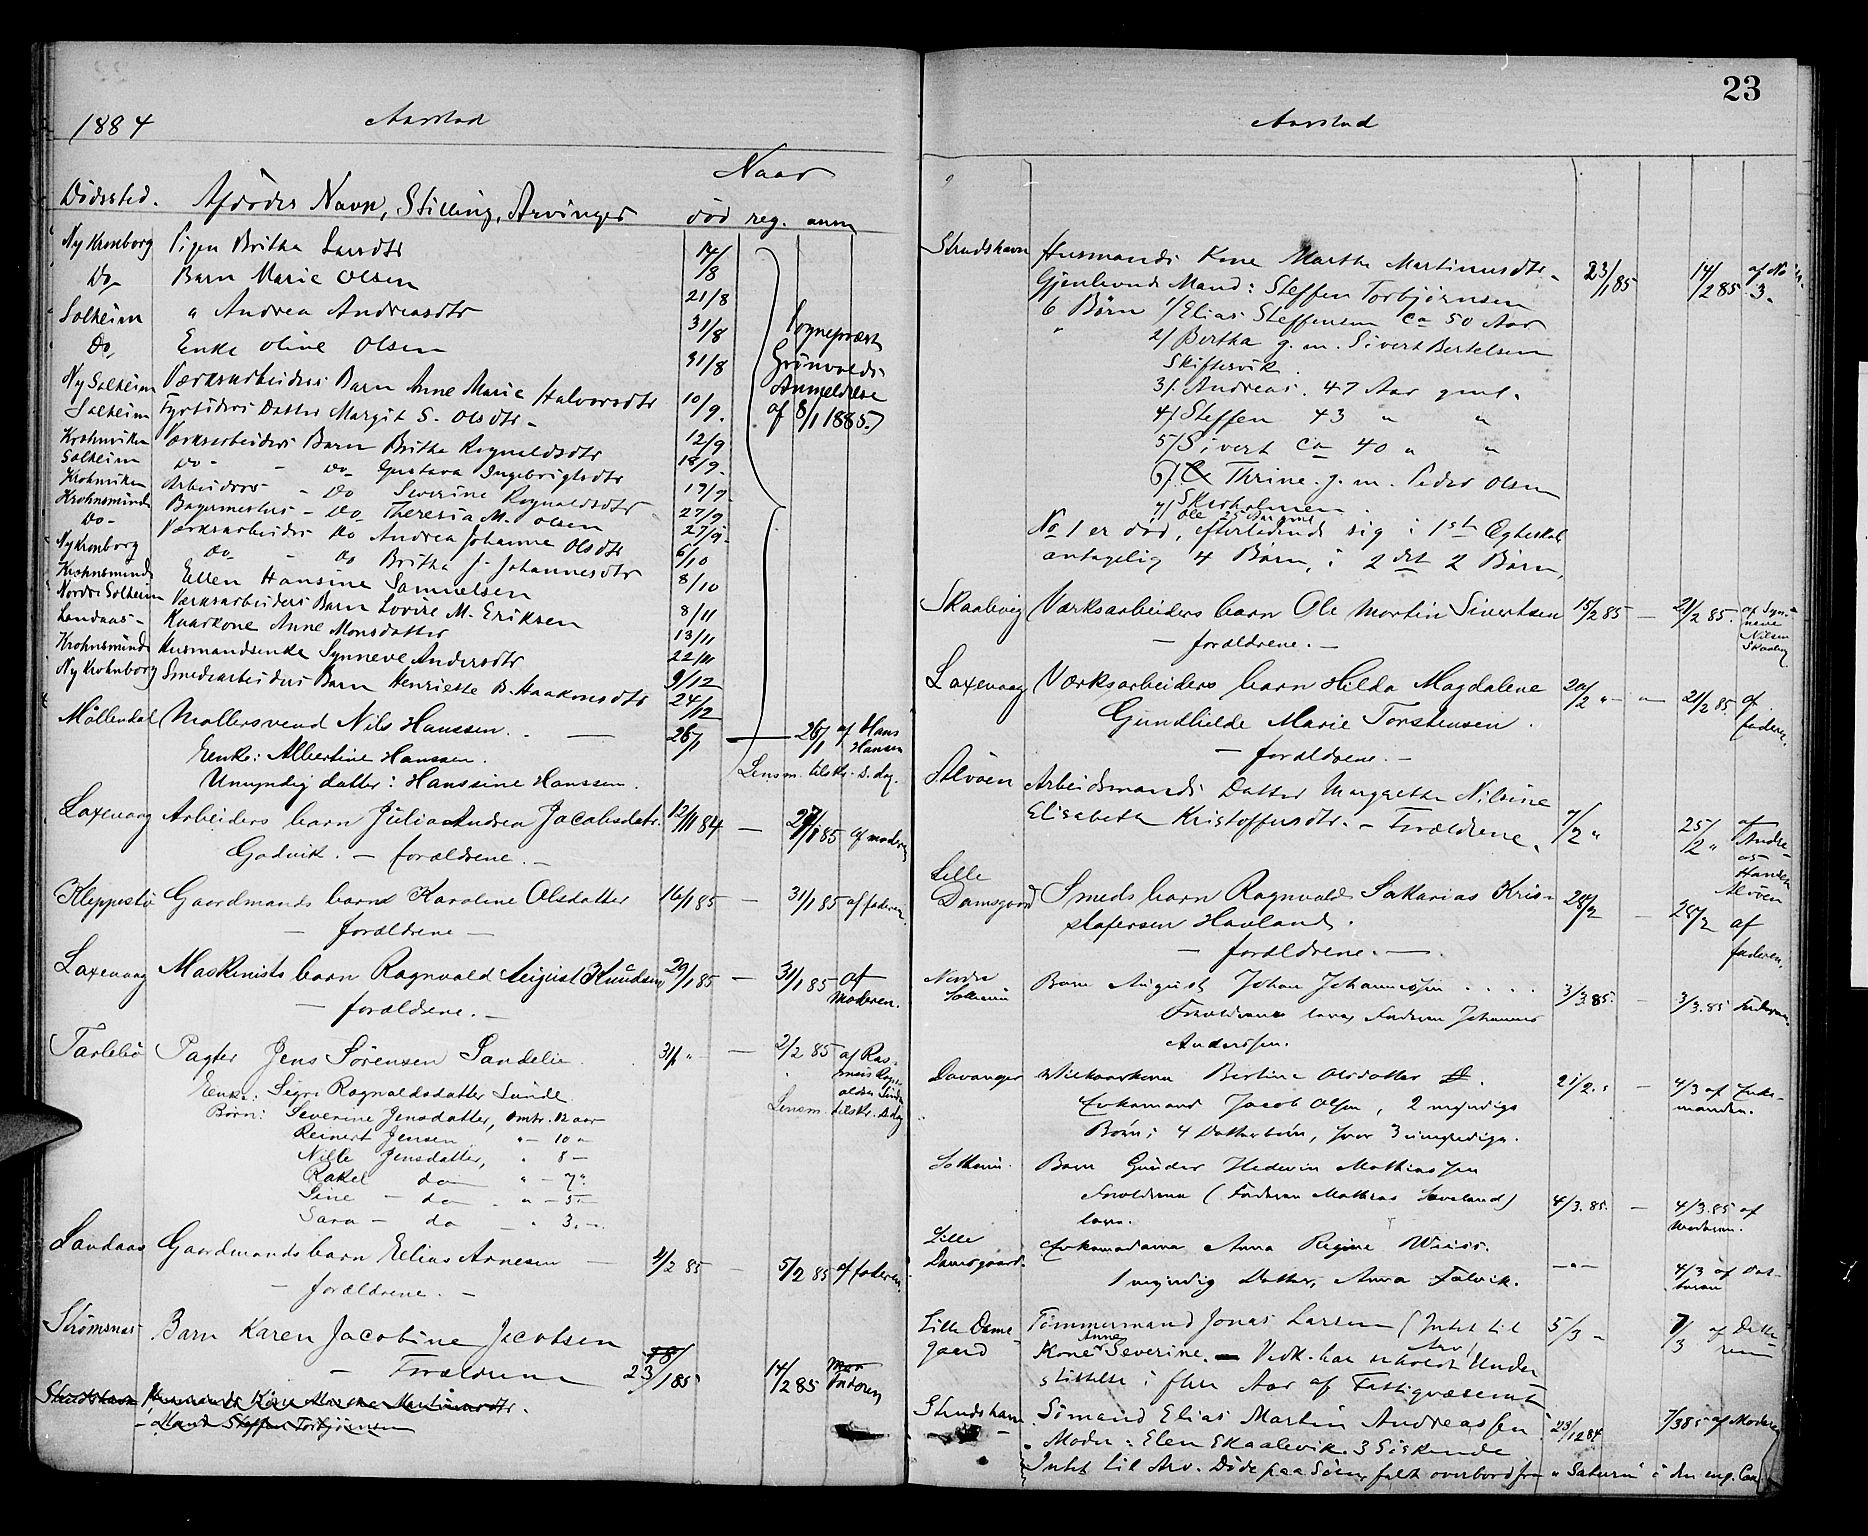 1884 Aarstad
Naar
Dødssted. Afdødes Navn, Stilling, Arvinger død reg. anm
Ny Kronborg Pigen Britha Larsdtr 14/8
Do Barn Marie Olsen 21/8
Solheim " Andrea Andreasdtr 31/8
Do, Enke Oline Olsen 31/8
Sognepræst
Grønvolds
Anmeldelse
af 8/1 1885.
Ny Solheim Værksarbeiders Barn Anne Marie Halvorsdtr 10/9
Solheim Fyrbøders Datter Margit S. Olsdtr 12/9
Krohnviken Værksarbeiders Barn Britha Rognaldsdtr 18/9
Solheim Do - Do Gustava Ingebrigtsdtr 19/9
Krohnviken Arbeiders - Do Severine Rognaldsdtr 27/9
Krohnsminde Bagermesters - Do Theresia M. Olsen 27/9
Do - Værksarbeiders Do Andrea Johanne Olsdtr 6/10
Ny Kronborg Do - Do Britha J. Johannesdtr 8/10
Krohnsminde Ellen Hansine Samuelsen 8/11
Nordre Solheim Værksarbeiders Barn Lovise M. Eriksen 13/11
Landaas - Kaarkone Anne Monsdatter 22/11
Krohnsminde Husmandsenke Synneve Andersdtr 9/12
Ny Krohnborg Smedearbeiders Barn Henriette B. Haakonsdtr 24/12
Møllendal Møllersvend Nils Hanssen. 26/1 — 26/1 af Hans Hansen
Enke: Albertine Hanssen.
Umyndig datter: Hanssine Hanssen. Lensm. tilskr. s. dag.
Laxevaag Arbeiders barn Julia Andrea Jacobsdatr. 12/11 84 — 27/1 85 af moderen
Godvik. — forældrene. —
Kleppestø Gaardmands barn Karoline Olsdatter 16/1 85 — 31/1 85 af faderen
— forældrene —
Laxevaag Maskinists barn Ragnvald August Knudsen 29/1 85 — 31/1 85 af Moderen.
— forældrene. —
Tarlebø Pagter Jens Sørensen Sandelie. 31/1 " — 2/2 85 af Ras-
Enke: Sigri Ragnaldsdatter Sunde
Børn: Severine Jensdatter, omtr. 12 aar Lensm. tilskr. s. dag
Reinert Jensen " - 10 "
Nille Jensdatter, " 8 -
Rakel do " - 7 "
Sine - do - " - 5 -
Sara - do - " 3. -
Landaas Gaardmands barn Elias Arnesen — 4/2 85 — 5/2 85 af faderen.
— forældrene. —
Strømsnes Barn Karen Jacobine Jacobsen
— Forældrene 23/1 85 14/2 85 Faderen
Strudshavn Husmands Kone Marthe Martinusdtr.
- Mand Steffen Torbjørnsen
23
Aarstad
Strudshavn Husmands Kone Marthe Martinusdtr. 23/1 85 14/2 85 af No 3.
Gjenlevende Mand: Steffen Torbjørnsen
6 Børn 1/ Elias Steffensen ca 50 Aar
2/ Bertha g. m. Sivert Bertelsen
Skiftesvik.
3/ Andreas. 47 Aar gml.
4/ Steffen 43 " "
5/ Sivert ca 40 " "
6/ Thrine. g. m. Peder Olsen
7/ Ole 25 Aar gml
No 1 er død, efterladende sig i 1ste Ægteskab
antagelig 4 Børn, i 2det 2 Børn,
Skaalevig Værksarbeiders barn Ole Martin Sivertsen 15/2 85 — 21/2 85. af Syn-
neve
Nilsen
Skaalevig
— forældrene. —
Laxevaag Værksarbeiders barn Hilda Magdalene 20/2 " — 21/2 85. af faderen.
Gundhilde Marie Torstensen.
— forældrene. —
Alvøen Arbeidsmands Datter Margrethe Nilsine
Elisabeth Kristoffersdtr. — Forældrene. 7/2 " 25/2 " af Andre-
as
Hansen
Alvøen
Lille
Damsgaard Smeds barn Ragnvald Sakarias Kris-
stofersen Havland. 28/2 — 28/2 af faderen.
— forældrene. —
Nordre
Solheim Barn August Johan Johannessen . . . . 3/3.85. — 3/3.85 Faderen.
Forældrene leve, Faderen Johannes
Anderssen.
Davanger Vilkaarskone Bertine Olsdatter 21/2. — 4/3 af Enke-
manden.
Enkemand Jacob Olsen, 2 myndige
Børn; 4 Datterbørn, hvor 3 umyndige.
Solheim. Barn Gunder Hedevin Mathiassen
Forældrene (Faderen Mathias Løveland) 4/3.85. — 4/3.85 af Moderen.
leve.
Lille
Damsgaard. Enkemadame Anna Regine Weiss.
1 myndig Datter, Anna Falvik. — " — 4/3 af Dat-
teren
Lille Dams-
gaard Tømmermand Jonas Larsen (Intet til Arv) 5/3 " 7/3 af Datte-
ren
Kone Anne Severine. — Vedk. har erholdt Under-
støttelse i flere Aar af Fattigvæsenet
Strudshavn Sømand Elias Martin Andreassen 23/12 84 7/3 85 af Moderen
Moder: Elen Skaalevik. 3 Søskende
Intet til Arv. Døde paa Søen, falt overbord fra "Saturn" i den eng. Can.